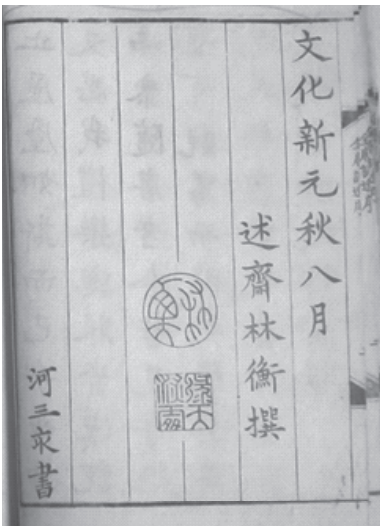 文化新元秋八月
述齋林衡撰
河三亥書